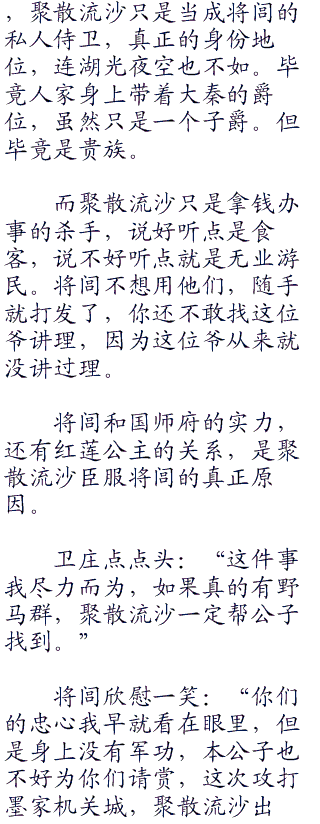 ，聚散流沙只是当成将闾的
私人侍卫，真正的身份地
位，连湖光夜空也不如。毕
竟人家身上带着大秦的爵
位，虽然只是一个子爵。但
毕竟是贵族。
而聚散流沙只是拿钱办
事的杀手，说好听点是食
客，说不好听点就是无业游
民。将闾不想用他们，随手
就打发了，你还不敢找这位
爷讲理，因为这位爷从来就
没讲过理。
将闾和国师府的实力，
还有红莲公主的关系，是聚
散流沙臣服将闾的真正原
因。
卫庄点点头：“这件事
我尽力而为，如果真的有野
马群，聚散流沙一定帮公子
找到。”
将闾欣慰一笑：“你们
的忠心我早就看在眼里，但
是身上没有军功，本公子也
不好为你们请赏，这次攻打
墨家机关城，聚散流沙出